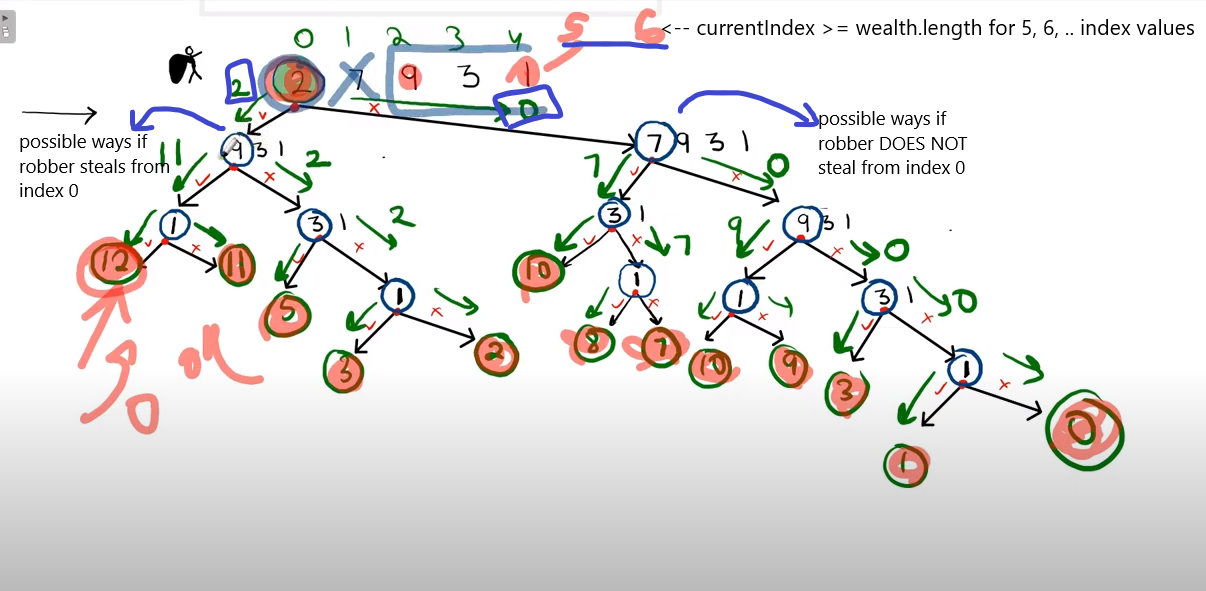 0 1 2 3 4 5 6 <-- currentIndex >= wealth.length for 5, 6, .. index values
2 2 7 9 3 1
0
possible ways if
robber steals from
index 0
possible ways if
robber DOES NOT
steal from index 0
11 9 3 1 2
7 7 9 3 1 0
1 3 1 2
3 1 7 9 9 3 1 0
12 11 5 1
10 1 1 3 1 0
3 2
8 7 10 9 3 1
0
1 0